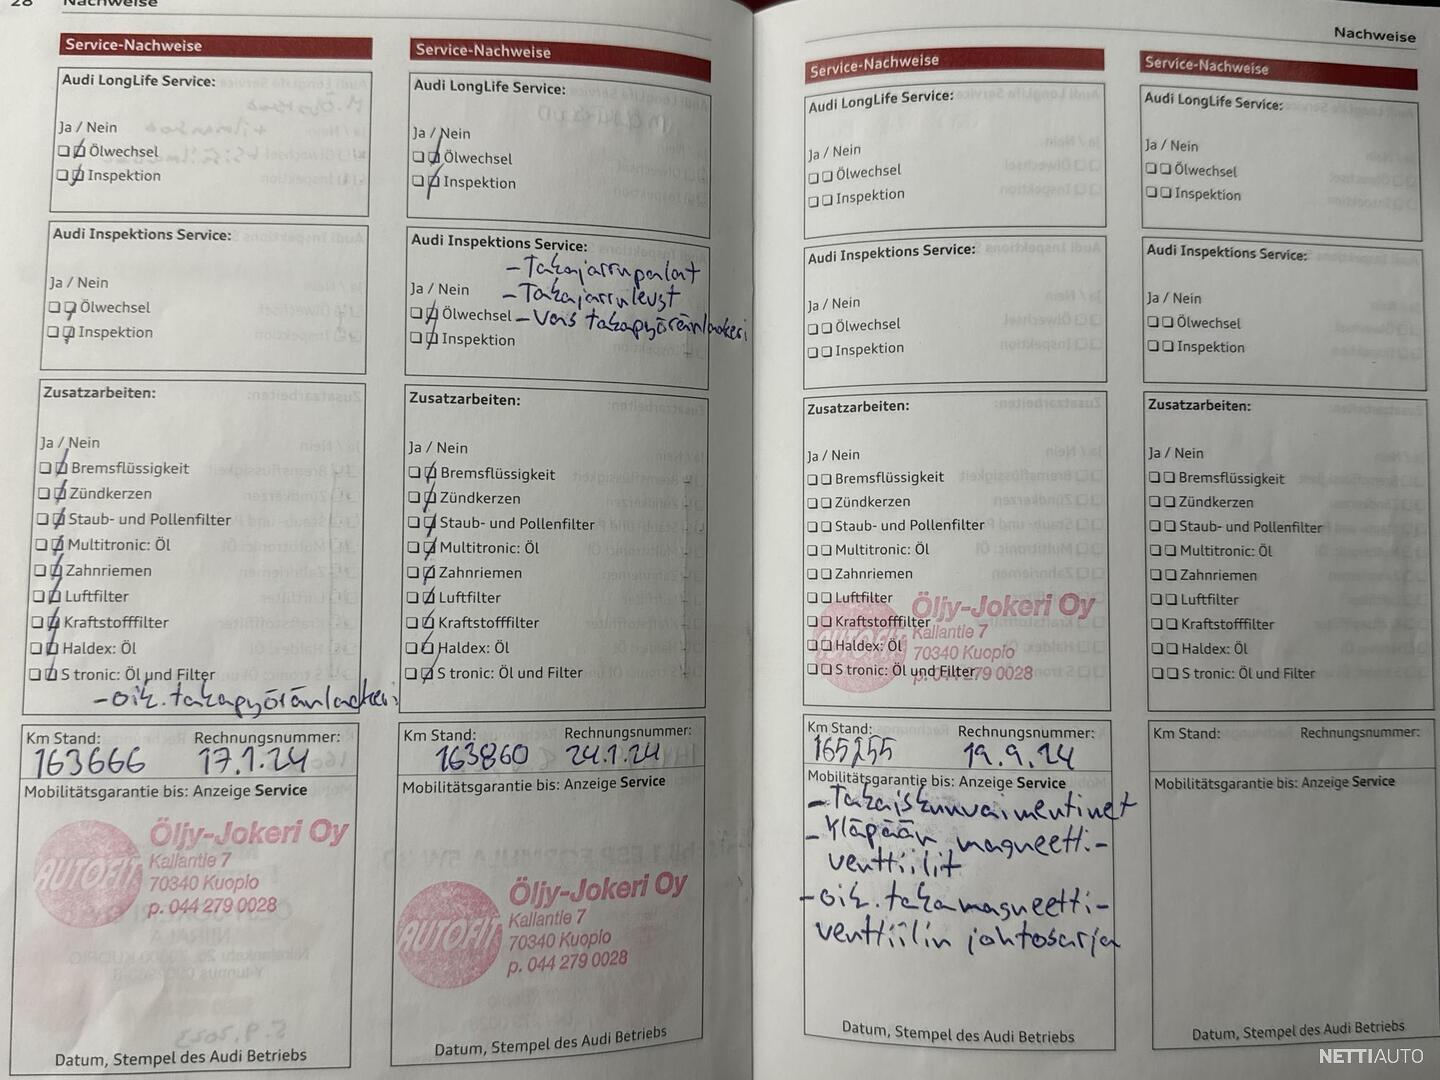 28 Nachweise
Service-Nachweise
Audi LongLife Service:
Ja / Nein
Ölwechsel
Inspektion
Audi Inspektions Service:
Ja / Nein
Ölwechsel
Inspektion
Zusatzarbeiten:
Ja / Nein
Bremsflüssigkeit
Zündkerzen
Staub- und Pollenfilter
Multitronic: Öl
Zahnriemen
Luftfilter
Kraftstofffilter
Haldex: Öl
S tronic: Öl und Filter
-oik.takapyöränlaakeri
Km Stand: Rechnungsnummer:
163666 17.1.24
Mobilitätsgarantie bis: Anzeige Service
AUTOFIT
Öljy-Jokeri Oy
Kallantie 7
70340 Kuopio
p. 044 279 0028
Datum, Stempel des Audi Betriebs
Service-Nachweise
Audi LongLife Service:
Ja / Nein
Ölwechsel
Inspektion
Audi Inspektions Service:
-Takajarrupalat
Ja / Nein -Takajarrulevyt
Ölwechsel -Vas takapyöränlaakeri
Inspektion
Zusatzarbeiten:
Ja / Nein
Bremsflüssigkeit
Zündkerzen
Staub- und Pollenfilter
Multitronic: Öl
Zahnriemen
Luftfilter
Kraftstofffilter
Haldex: Öl
S tronic: Öl und Filter
Km Stand: Rechnungsnummer:
163860 24.1.24
Mobilitätsgarantie bis: Anzeige Service
AUTOFIT
Öljy-Jokeri Oy
Kallantie 7
70340 Kuopio
p. 044 279 0028
Datum, Stempel des Audi Betriebs
Nachweise
Service-Nachweise
Audi LongLife Service:
Ja / Nein
Ölwechsel
Inspektion
Audi Inspektions Service:
Ja / Nein
Ölwechsel
Inspektion
Zusatzarbeiten:
Ja / Nein
Bremsflüssigkeit
Zündkerzen
Staub- und Pollenfilter
Multitronic: Öl
Zahnriemen
Luftfilter
Kraftstofffilter
Haldex: Öl
S tronic: Öl und Filter
AUTOFIT
Öljy-Jokeri Oy
Kallantie 7
70340 Kuopio
p. 044 279 0028
Km Stand: Rechnungsnummer:
165255 19.9.24
Mobilitätsgarantie bis: Anzeige Service
-Takaiskunvaimentimet
-Kläpään magneetti-
venttiilit
-oik.takamagneetti-
venttiilin johtosarja
Datum, Stempel des Audi Betriebs
Service-Nachweise
Audi LongLife Service:
Ja / Nein
Ölwechsel
Inspektion
Audi Inspektions Service:
Ja / Nein
Ölwechsel
Inspektion
Zusatzarbeiten:
Ja / Nein
Bremsflüssigkeit
Zündkerzen
Staub- und Pollenfilter
Multitronic: Öl
Zahnriemen
Luftfilter
Kraftstofffilter
Haldex: Öl
S tronic: Öl und Filter
Km Stand: Rechnungsnummer:
Mobilitätsgarantie bis: Anzeige Service
Datum, Stempel des Audi Betriebs
NETTIAUTO